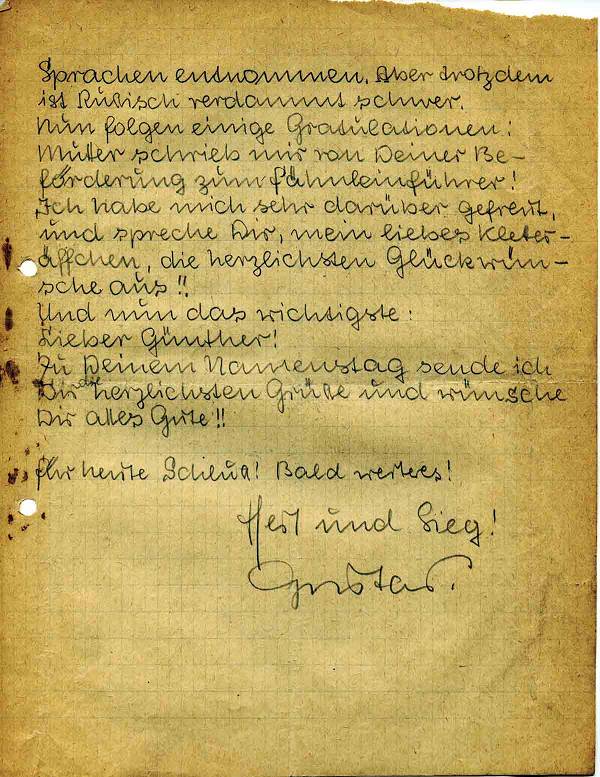 Sprachen entnommen. Aber trotzdem
ist Rußisch verdammt schwer.
Nun folgen einige Gratulationen:
Mutter schrieb mir von Deiner Be-
förderung zum Fähnleinführer!
Ich habe mich sehr darüber gefreut,
und spreche Dir, mein liebes Kleter-
äffchen, die herzlichsten Glückwün-
sche aus!!
Und nun das wichtigste:
Lieber Günther!
Zu Deinem Namenstag sende ich
Dir die herzlichsten Grüße und wünsche
Dir alles Gute!!
Für heute Schluß! Bald weiteres!
Heil und Sieg!
Gustav.